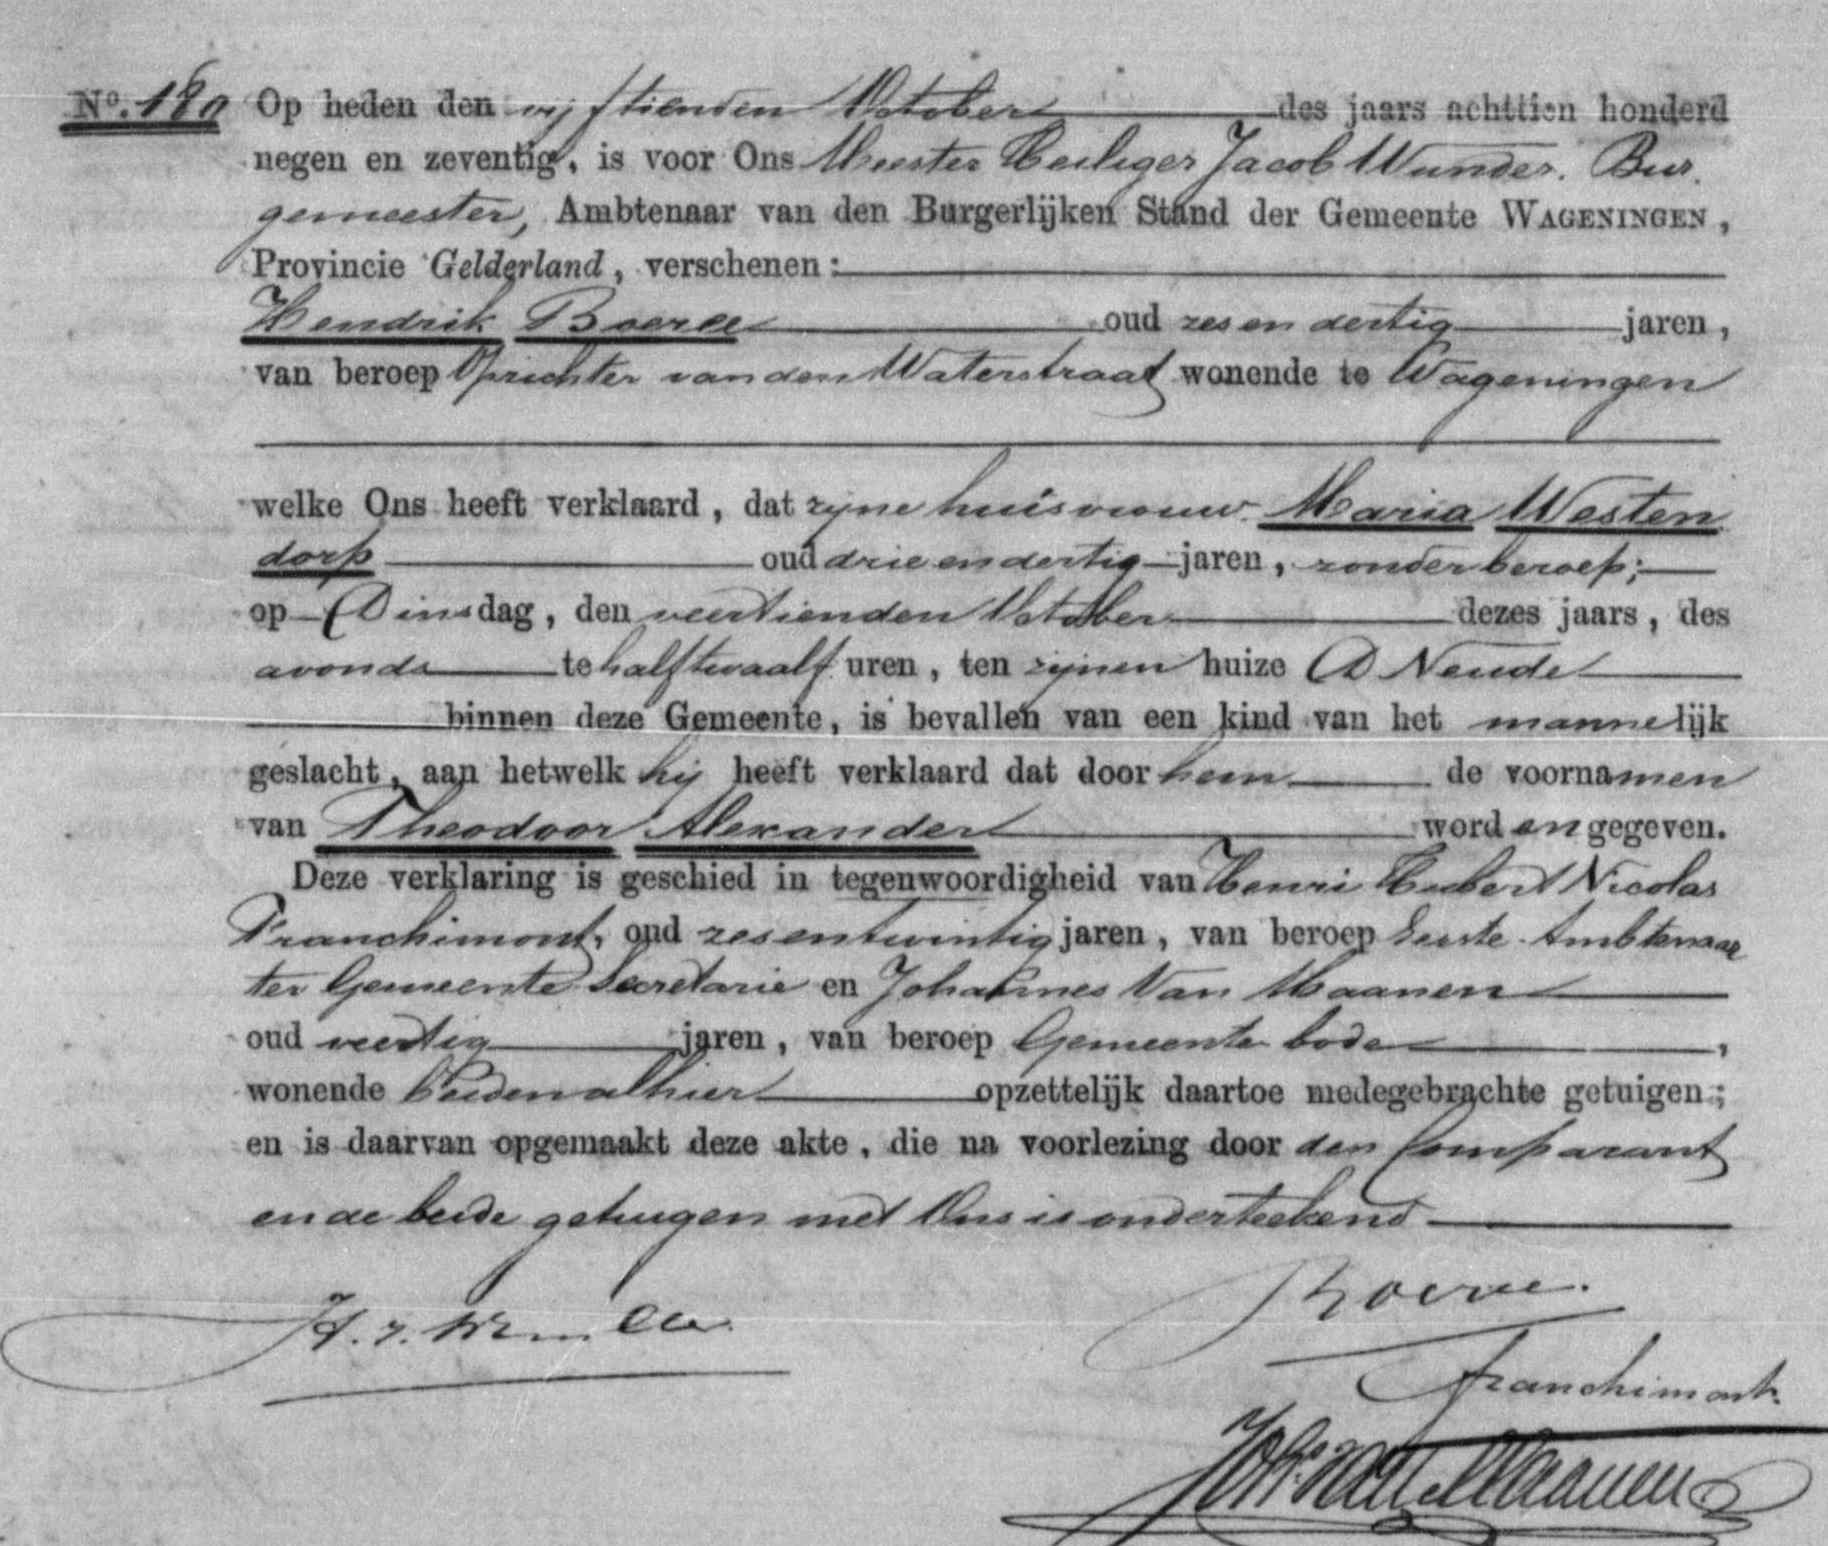 No. 180 Op heden den vijftienden October des jaars achttien honderd
negen en zeventig, is voor Ons Meester Heiliger Jacob Wunder. Bur
gemeester, Ambtenaar van den Burgerlijken Stand der Gemeente WAGENINGEN,
Provincie Gelderland, verschenen:
Hendrik Boeree oud zes en dertig jaren,
van beroep Opzichter van den Waterstraat wonende te Wageningen
welke Ons heeft verklaard, dat zijne huisvrouw Maria Westen
dorp oud drie en dertig jaren, zonder beroep;
op Dinsdag, den veertienden October dezes jaars, des
avonds te half twaalf uren, ten zijnen huize D Neude
binnen deze Gemeente, is bevallen van een kind van het mannelijk
geslacht, aan hetwelk hij heeft verklaard dat door hem de voornamen
van Theodoor Alexander worden gegeven.
Deze verklaring is geschied in tegenwoordigheid van Henri Hubert Nicolas
Franchimont, oud zes en twintig jaren, van beroep Eerste Ambtenaar
ter Gemeente Secretarie en Johannes Van Maanen
oud veertig jaren, van beroep Gemeente bode,
wonende beiden alhier opzettelijk daartoe medegebrachte getuigen;
en is daarvan opgemaakt deze akte, die na voorlezing door den Comparant
en de beide getuigen met Ons is onderteekend
Boeree.
H. J. Wunder
Franchimont.
Joh: van Maanen